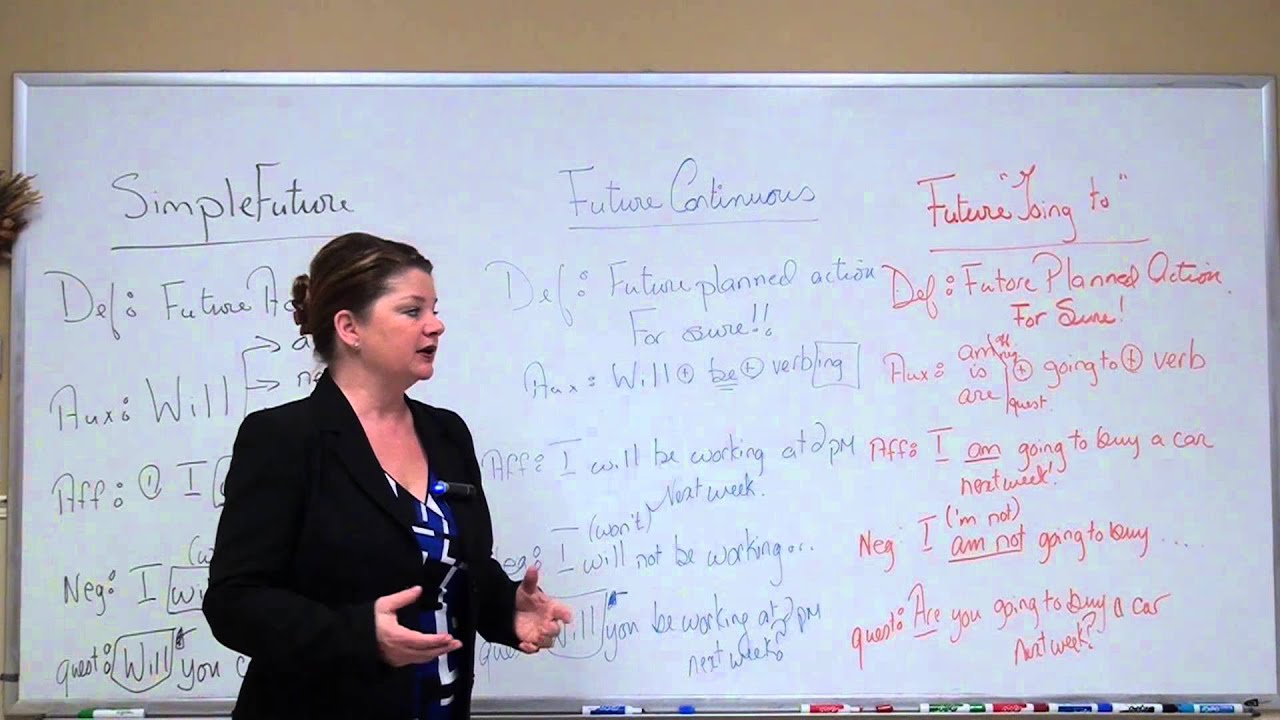 Simple Future
Def: Future
Aux: Will
Aff: ① I
Neg: I
quest: Will you
Future Continuous
Def: Future planned action
For sure!!
Aux: Will + be + verb ing
Aff: I will be working at 2pm
Next week.
(won't)
Neg: I will not be working...
quest: Will you be working at 2pm
next week?
Future "Going to"
Def: Future Planned Action.
For Sure!
am
Aux: is + going to + verb
are
quest.
Aff: I am going to buy a car
next week!
('m not)
Neg: I am not going to buy ....
quest: Are you going to buy a car
next week?